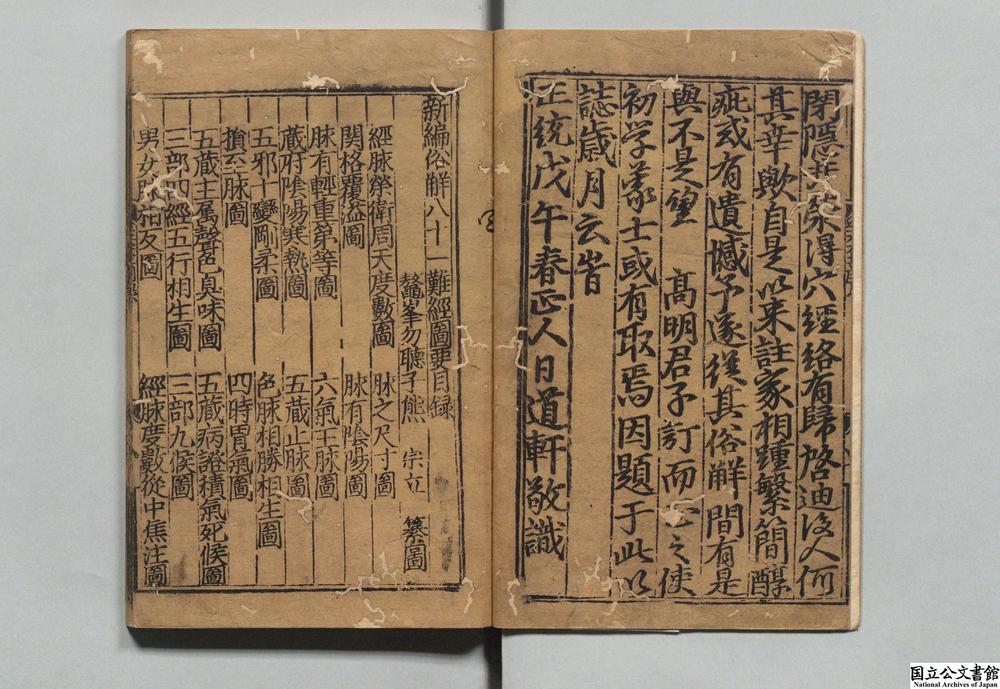 閉隱在深得穴經絡有歸啓迪後人何
其幸歟自是以来註家相踵繁簡醇
疵或有遺憾予遂從其俗解間有是
與不是望 高明君子訂而正之使
初学㒰士或有取焉因題于此以
誌歲月云旹
正統戊午春正人日道軒敬識
新編俗解八十一難經圖要目録
鼇峯勿聽子熊 宗立 纂圖
經脉榮衛周天度數圖 脉之尺寸圖
関格覆溢圖 脉有隂陽圖
脉有輕重第等圖 六氣王脉圖
蔵府隂陽寒熱圖 五蔵止脉圖
五邪十變剛柔圖 色脉相勝相生圖
損至脉圖 四時胃氣圖
五蔵主属聲色臭味圖 五蔵病證積氣死候圖
三部四經五行相生圖 三部九候圖
男女脉相反圖 經脉度數從中焦注圖
国立公文書館
National Archives of Japan